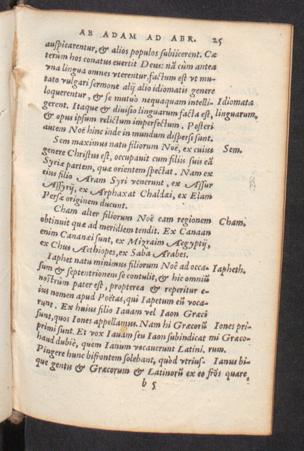 AB ADAM AD ABR. 25
auspicarentur, & alios populos subiicerent. Cæ
terùm hos conatus euertit Deus: nã cùm antea
vna lingua omnes vterentur, factum est vt mu-
tato vulgari sermone alij alio idiomatis genere
loquerentur, & se mutuò nequaquam intelli- Idiomata
gerent. Itaque & diuisio linguarum facta est, linguarum,
& opus ipsum relictum imperfectum. Posteri
autem Noë hinc inde in mundum dispersi sunt.
Sem maximus natu filiorum Noë, ex cuius Sem.
genere Christus est, occupauit cum filiis suis eã
Syriæ partem, quæ orientem spectat. Nam ex
eius filio Aram Syri venerunt, ex Assur
Assyrij, ex Arphaxat Chaldæi, ex Elam
Persæ originem ducunt.
Cham alter filiorum Noë eam regionem Cham,
obtinuit quæ ad meridiem tendit. Ex Canaan
enim Cananæi sunt, ex Mizraim Aegyptij,
ex Chus Aethiopes, ex Saba Arabes.
Iaphet natu minimus filiorum Noë ad occa- Iapheth.
sum & septentrionem se contulit, & hic omniũ
nostrûm pater est, propterea & reperitur e-
ius nomen apud Poëtas, qui Iapetum eũ voca-
runt. Ex huius filio Iauan vel Iaon Græci
sunt, quos Iones appellamus. Nam hi Græcorũ Iones pri-
primi sunt. Et vox Iauan seu Iaon subindicat mi Græco-
haud dubiè, quem Ianum vocauerunt Latini. rum.
Pingere hunc bifrontem solebant, quòd vtrius- Ianus bi-
que gentis & Græcorum & Latinorũ ex eo frõs quare
b 5